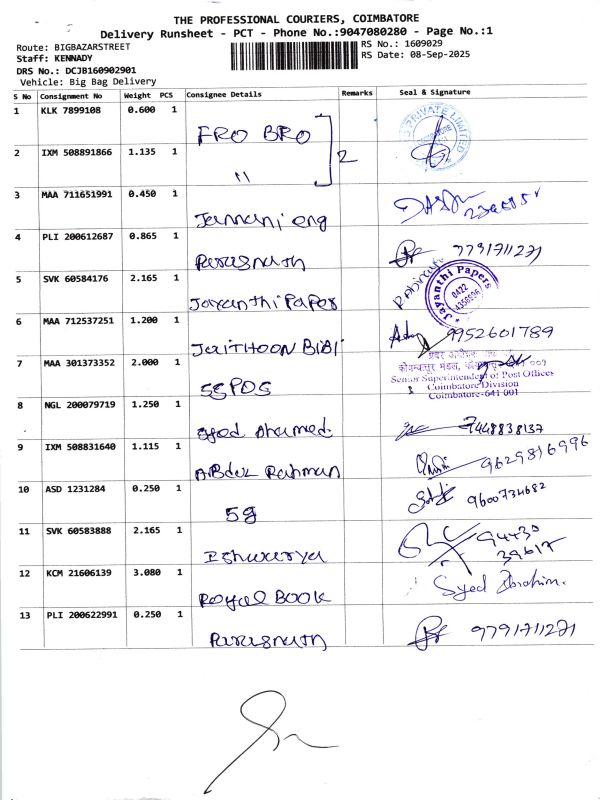 THE PROFESSIONAL COURIERS, COIMBATORE
Delivery Runsheet - PCT - Phone No.:9047080280 - Page No.:1
Route: BIGBAZARSTREET
RS No.: 1609029
Staff: KENNADY
RS Date: 08-Sep-2025
DRS No.: DCJB160902901
Vehicle: Big Bag Delivery
S No Consignment No Weight PCS Consignee Details Remarks Seal & Signature
1 KLK 7899108 0.600 1 FRO BRO
PRIVATE LIMITED
2 IXM 508891866 1.135 1 " 2
3 MAA 711651991 0.450 1 Jannani eng
4 PLI 200612687 0.865 1 Parasnath 7791711271
5 SVK 60584176 2.165 1 Jayanthi Paper
Jayanthi Papers
0422
6 MAA 712537251 1.200 1 JaiTHOON BIBI 9952601789
7 MAA 301373352 2.000 1 SSPOS
Senior Superintendent of Post Offices
Coimbatore Division
Coimbatore-641 001
8 NGL 200079719 1.250 1 Syed Ahamed 7448838137
9 IXM 508831640 1.115 1 Abdul Rahman 9629816996
10 ASD 1231284 0.250 1 5g 9600734682
11 SVK 60583888 2.165 1 Ishwarya 94430
39617
12 KCM 21606139 3.080 1 Royal BOOK Syed Ibrahim.
13 PLI 200622991 0.250 1 Parasnath 9791711271